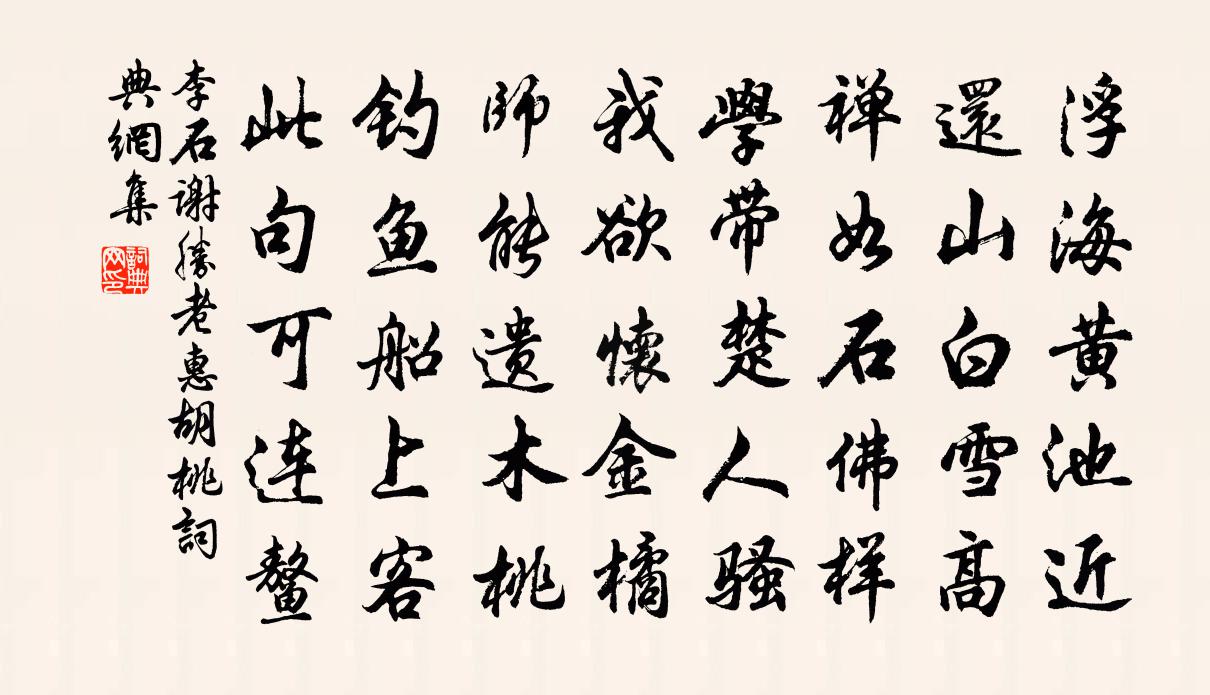 浮海黄池近
還山白雪高
禅如石佛样
學带楚人骚
我欲懷金橘
師能遗木桃
钓鱼船上客
此句可连鳌
李石谢勝老惠胡桃詞
典網集
詞典
网印